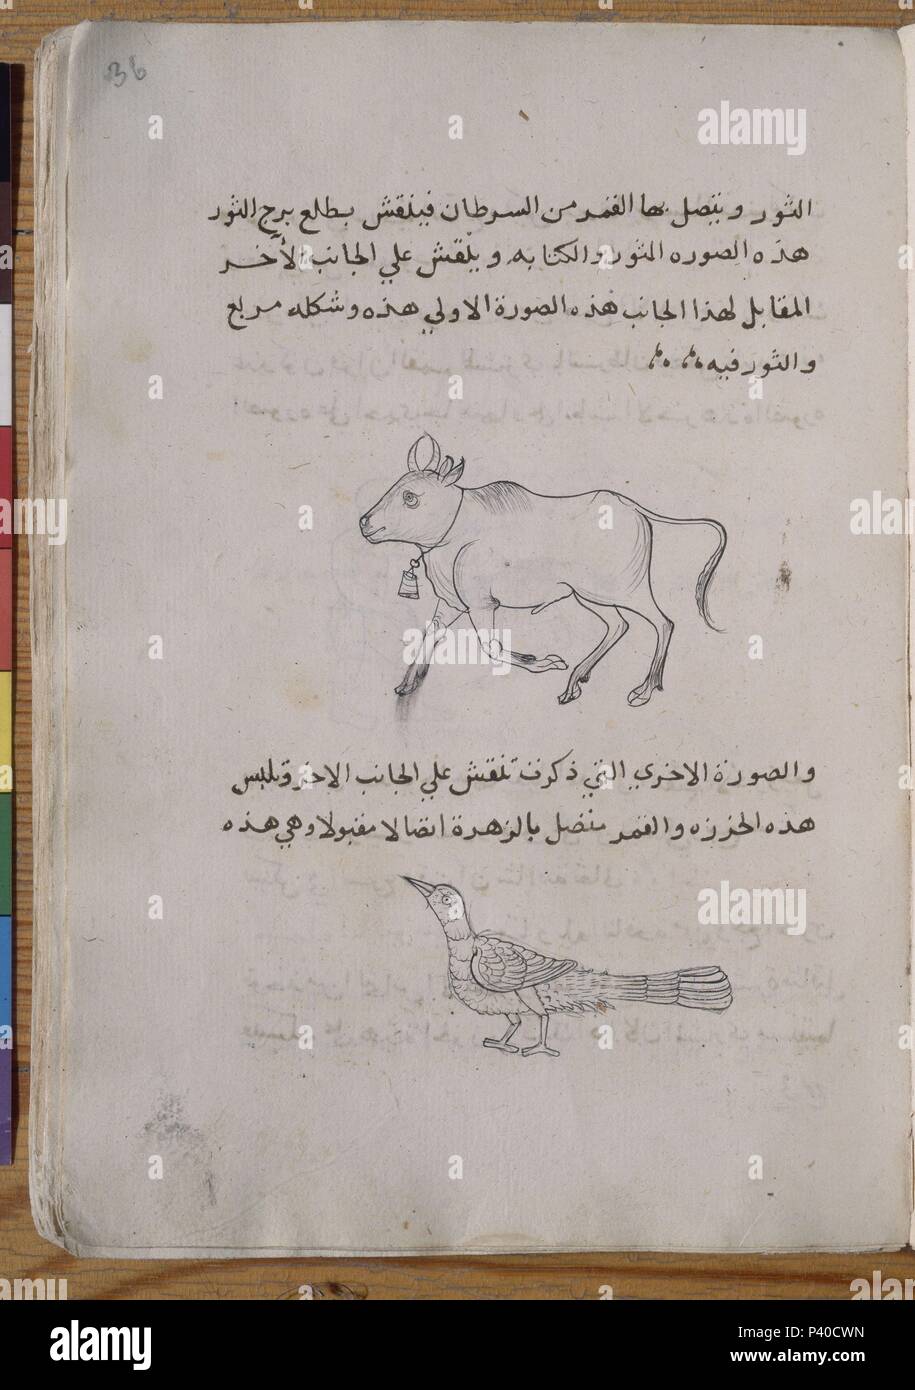 36
الثور ويتصل بها القمر من السرطان فينقش بطلع برج الثور
هذه الصوره المثور والكتابه وينقش علي الجانب الآخر
المقابل لهذا الجانب هذه الصورة الاولي هذه وشكله مربع
والثور فيه
والصورة الاخري التي ذكرت تنقش علي الجانب الاخر وتلبس
هذه الخرزه والقمر متصل بالزهرة اتصالا مقبولا وهي هذه
alamy
Image ID: P40CWN
www.alamy.com